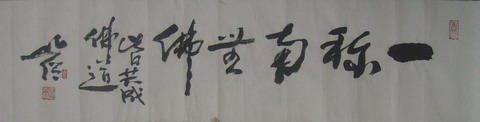 一称南無佛
皆共成
佛道